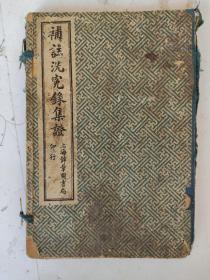 補註洗冤錄集證
上海錦章圖書局
印行